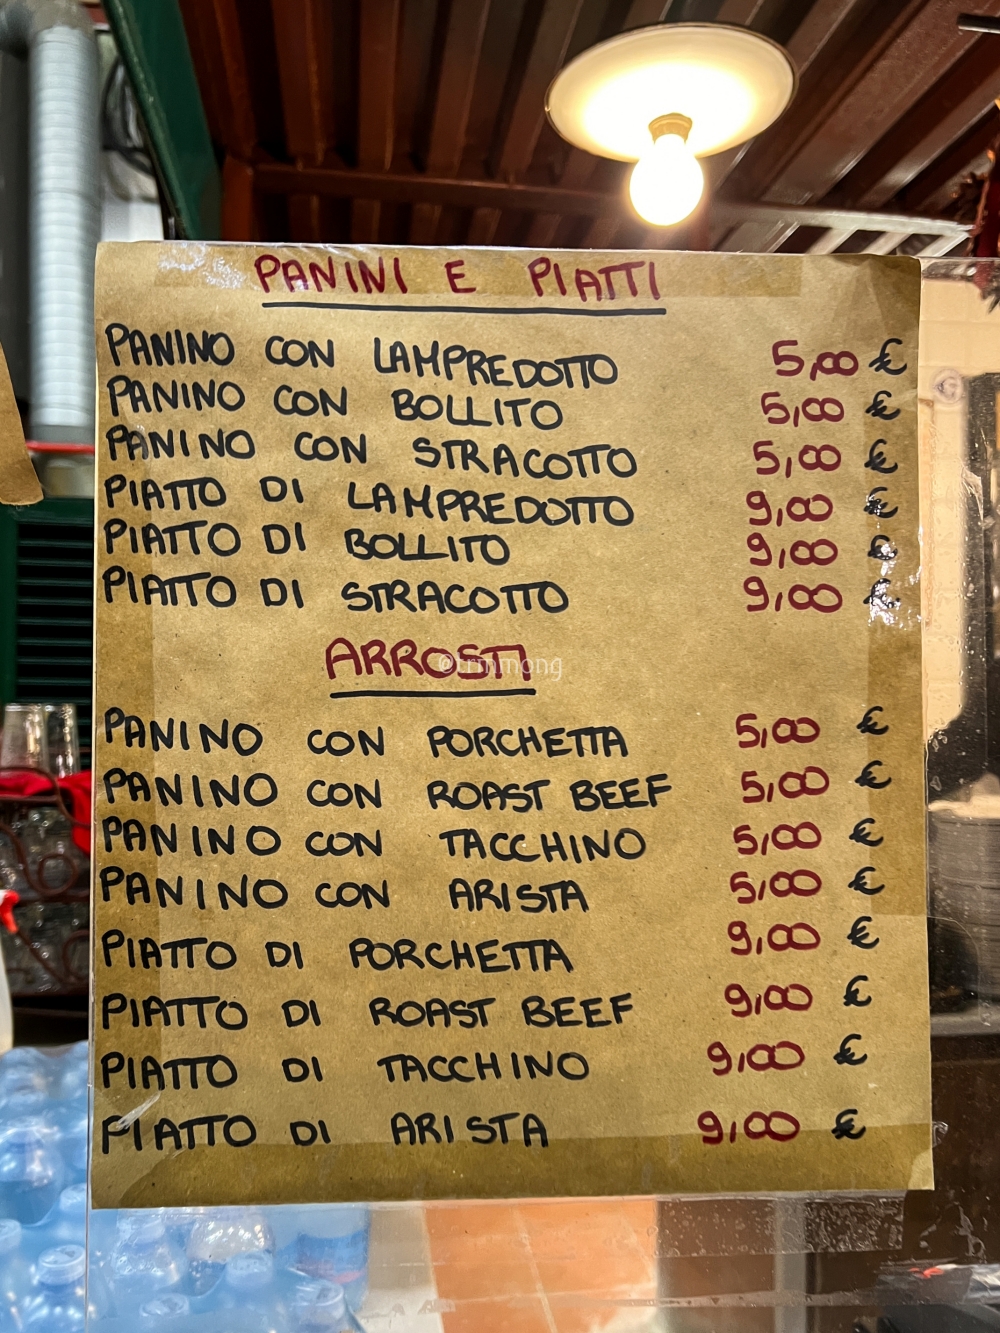 PANINI E PIATTI
PANINO CON LAMPREDOTTO 5,00 €
PANINO CON BOLLITO 5,00 €
PANINO CON STRACOTTO 5,00 €
PIATTO DI LAMPREDOTTO 9,00 €
PIATTO DI BOLLITO 9,00 €
PIATTO DI STRACOTTO 9,00 €
ARROSTI
@trmmong
PANINO CON PORCHETTA 5,00 €
PANINO CON ROAST BEEF 5,00 €
PANINO CON TACCHINO 5,00 €
PANINO CON ARISTA 5,00 €
PIATTO DI PORCHETTA 9,00 €
PIATTO DI ROAST BEEF 9,00 €
PIATTO DI TACCHINO 9,00 €
PIATTO DI ARISTA 9,00 €